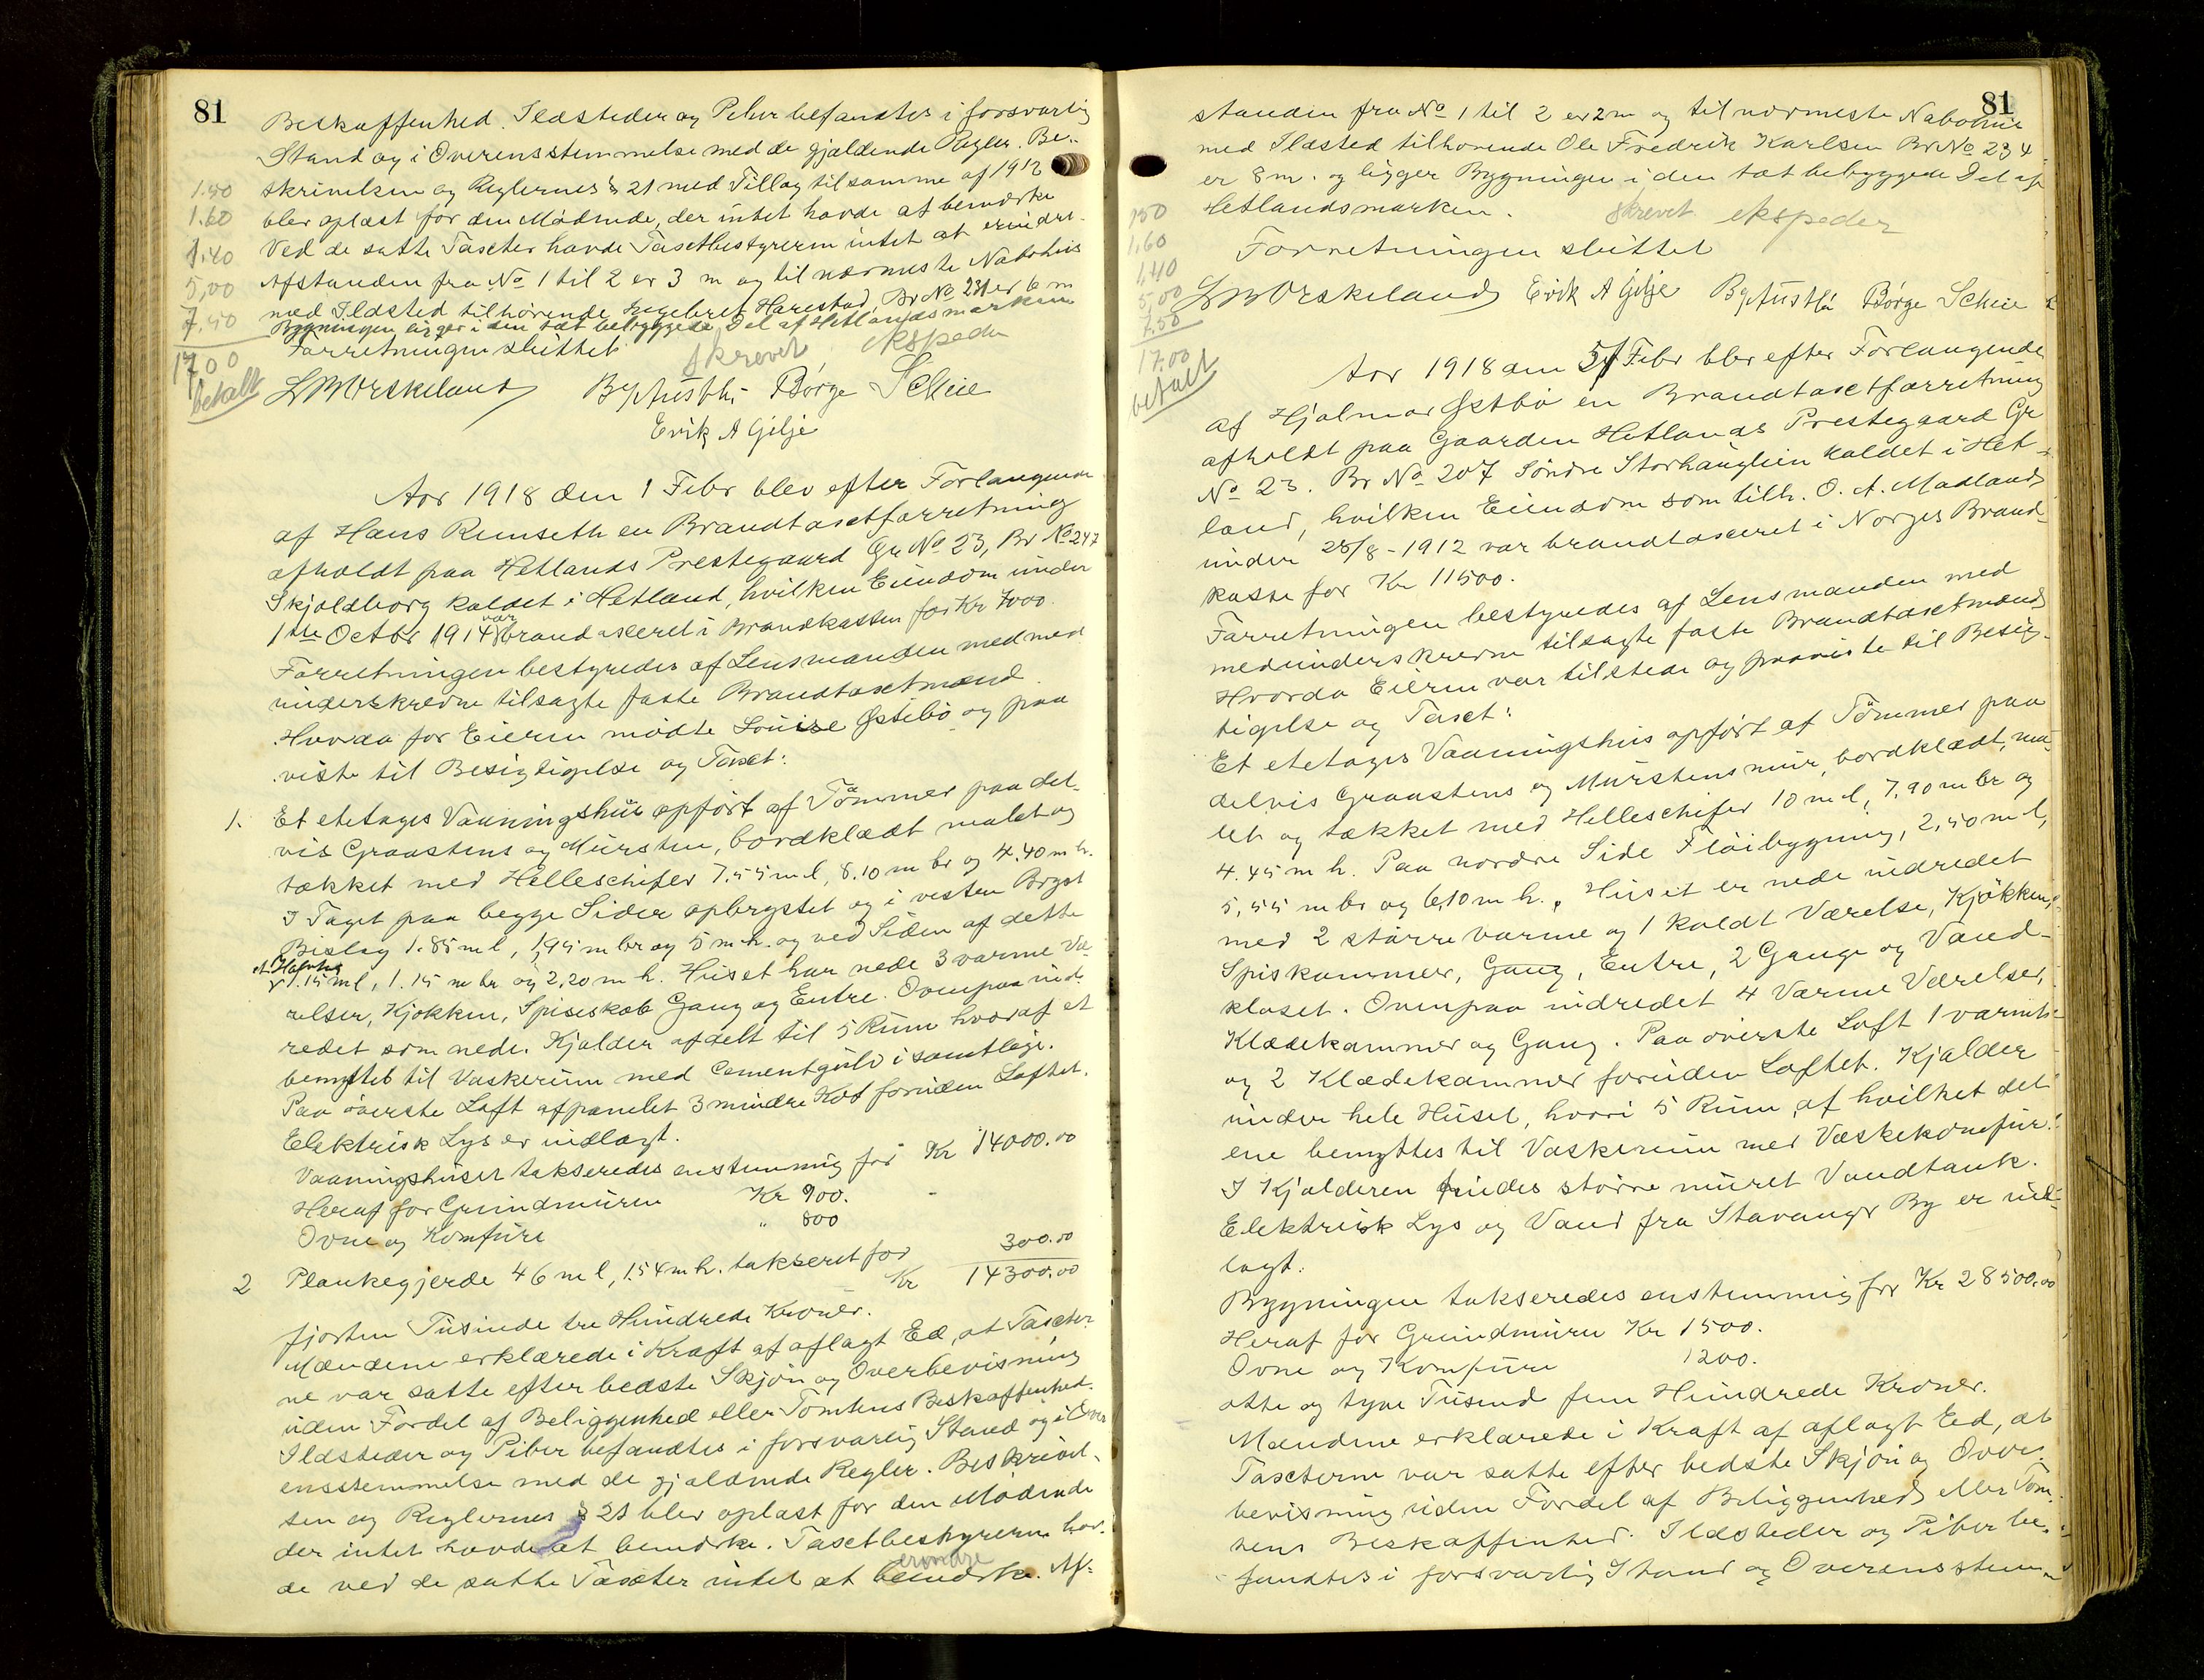 81
Beskaffenhed. Ildsteder og Piber befandtes i forsvarlig
Stand og i Overensstemmelse med de gjældende Regler. Be-
skrivelsen og Reglernes § 21 med Tillæg til samme af 1912
blev oplæst for den Mødende, der intet havde at bemærke
Ved de satte Taxter havde Taxtbestyreren intet at erindre.
Afstanden fra No 1 til 2 er 3 m og til nærmeste Nabohus
med Ildsted tilhørende Ingebret Harestad, Br No 231 er 6 m
Bygningen ligger i den tæt bebyggede Del af Hetlandsmarken
Forretningen sluttet
skrevet ekspeder
1.50
1.60
1.40
5,00
7.50
17.00
betalt
L M Orskeland B Austbø Børge Scheie
Erik A Gilje
Aar 1918 den 1 Febr blev efter Forlangende
af Hans Rimseth en Brandtaxtforretning
afholdt paa Hetlands Prestegaard Gr No 23, Br No 247
Skjoldborg kaldet i Hetland, hvilken Eiendom under
1ste Octbr 1914 var brandtaxeret i Brandkassen for Kr 7000.
Forretningen bestyredes af Lensmanden med med
underskrevne tilsagte faste Brandtaxtmænd.
Hvorda for Eieren mødte Louise Østebø og paa
viste til Besigtigelse og Taxt:
1. Et etetages Vaaningshus opført af Tømmer paa del-
vis Graastens og Mursten, bordklædt malet og
tækket med Helleschifer 7.55 m l, 8.10 m br og 4.40 m h.
I Taget paa begge Sider opbrystet og i vesten Bryst
Bislag 1.85 m l, 1,95 m br og 5 m h. og ved Siden af dette
et Halvtag 1.15 m l, 1.15 m br og 2,20 m h. Huset har nede 3 varme Væ-
relser, Kjøkken, Spiseskab Gang og Entre. Ovenpaa ind-
redet som nede. Kjælder afdelt til 5 Rum hvoraf et
benyttet til Vaskerum med Cementgulv i samtlige.
Paa øverste Loft afpanelet 3 mindre Kot foruden Loftet.
Elektrisk Lys er indlagt.
Vaaningshuset takseredes enstemmig for Kr 14000.00
Heraf for Grundmuren Kr 900.
Ovne og Komfure " 800
2 Plankegjerde 46 m l, 1.54 m h. takseret for 300.00
Kr 14300.00
fjorten Tusinde tre Hundrede Kroner.
Mændene erklærede i Kraft af aflagt Ed, at Taxter-
ne var satte efter bedste Skjøn og Overbevisning
uden Fordel af Beliggenhed eller Tomtens Beskaffenhed.
Ildsteder og Piber befandtes i forsvarlig Stand og i Over
ensstemmelse med de gjældende Regler. Beskrivel-
sen og Reglernes § 21 blev oplæst for den Mødende
der intet havde at bemærke. Taxtbestyreren hav-
erindre
de ved de satte Taxter intet at bemærke. Af-
81
standen fra No 1 til 2 er 2 m og til nærmeste Nabohus
med Ildsted tilhørende Ole Fredrik Karlsen Br No 234
er 8 m. og ligger Bygningen i den tæt bebyggede Del af
Hetlandsmarken.
skrevet ekspeder
Forretningen sluttet
1.50
1.60
1,40
5,00
7.50
17.00
betalt
L M Orskeland Erik A Gilje B Austbø Børge Scheie
Aar 1918 den 5/ Febr blev efter Forlangende
af Hjalmar Østbø en Brandtaxtforretning
afholdt paa Gaarden Hetlands Prestegaard Gr
No 23. Br No 207 Søndre Storhauglien kaldet i Het-
land, hvilken Eiendom som tilh. O. A. Madland
under 28/8-1912 var brandtaxeret i Norges Brand-
kasse for Kr 11500.
Forretningen bestyredes af Lensmanden med
medunderskrevne tilsagte faste Brandtaxtmænd
Hvorda Eieren var tilstede og paaviste til Besig-
tigelse og Taxt:
Et etetages Vaaningshus opført af Tømmer paa
delvis Graastens og Murstensmur, bordklædt, ma-
let og tækket med Helleschifer 10 m l, 7.90 m br og
4.45 m h. Paa nordre Side Fløibygning, 2,50 m l,
5,55 m br og 6,10 m h. Huset er nede indredet
med 2 større varme og 1 koldt Værelse, Kjøkken,
Spiskammer, Gang, Entre, 2 Gange og Vand-
kloset. Ovenpaa indredet 4 Varme Værelser,
Klædekammer og Gang. Paa øverste Loft 1 varmt
og 2 Klædekammer foruden Loftet. Kjælder
under hele Huset, hvori 5 Rum, af hvilket det
ene benyttes til Vaskerum med Vaskekomfur.
I Kjælderen findes større muret Vandtank.
Elektrisk Lys og Vand fra Stavanger By er ind-
lagt.
Bygningen takseredes enstemmig for Kr 28500.00
Heraf for Grundmuren Kr 1500.
Ovne og Komfure 1200.
otte og tyve Tusend fem Hundrede Kroner.
Mændene erklærede i Kraft af aflagt Ed, at
Taxterne var satte efter bedste Skjøn og Over-
bevisning uden Fordel af Beliggenhed eller Tom-
tens Beskaffenhed. Ildsteder og Piber be-
fandtes i forsvarlig Stand og Overensstem-